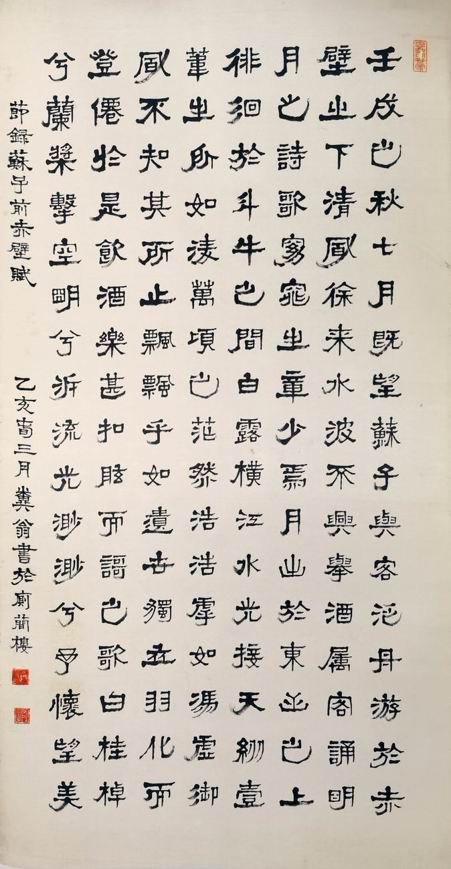 壬戌之秋七月既望蘇子與客泛舟游於赤
壁之下清風徐來水波不興舉酒属客誦明
月之詩歌窈窕之章少焉月出於東山之上
徘徊於斗牛之間白露橫江水光接天縱壹
葦之所如淩萬頃之茫然浩浩虖如馮虛御
風不知其所止飄飄乎如遺世獨立羽化而
登僊於是飲酒樂甚扣舷而謌之歌曰桂棹
兮蘭槳擊空明兮泝流光渺渺兮予懷望美
節錄蘇子前赤壁賦
乙亥春三月糞翁書於廁簡樓